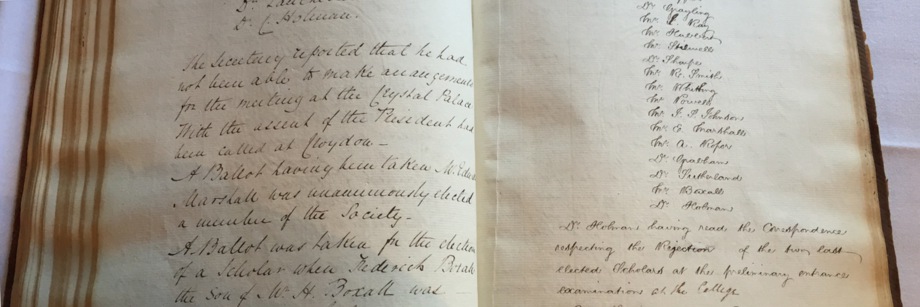 Dr. C. Holman.
The Secretary reported that he had
not been able to make arrangements
for the meeting at the Crystal Palace
With the assent of the President had
been called at Croydon –
A Ballot having been taken Mr. Edwin
Marshall was unanimously elected
a member of the Society –
A Ballot was taken for the election
of a Scholar when Frederick Boxall
the son of Mr. H. Boxall was –
Dr. Grayling
Mr. Ray
Mr.
Mr. Stilwell
Dr. Sharpe
Mr. N. Smith
Mr. Whitling
Mr. Nowell
Mr. J. P. Johnson
Mr. E. Marshall
Mr. A. Roper
Dr.
Dr. Sutherland
Mr. Boxall
Dr. Holman
Dr. Holman having read the Correspondence
respecting the Rejection of the two last
elected Scholars at the preliminary entrance
examinations at the College